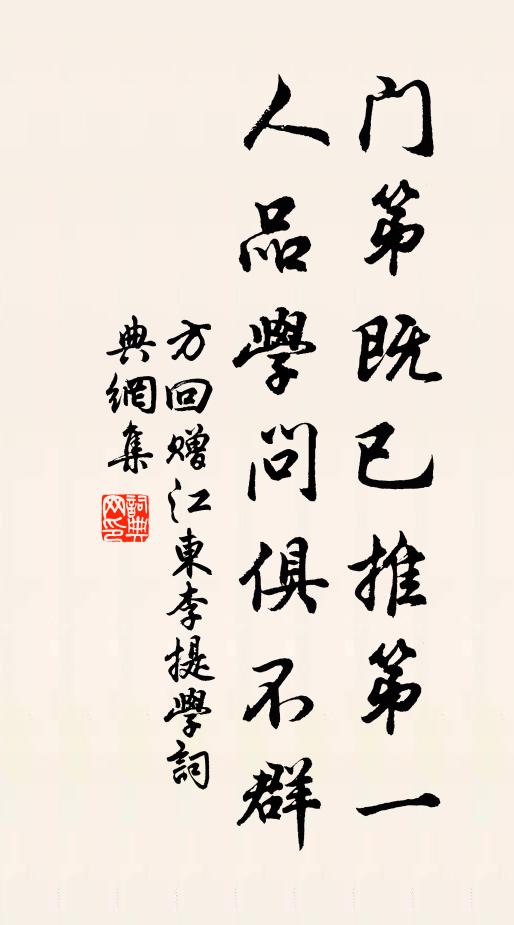 门第既已推第一
人品學问俱不群
方回赠江東李提學詞
典網集
詞典网印